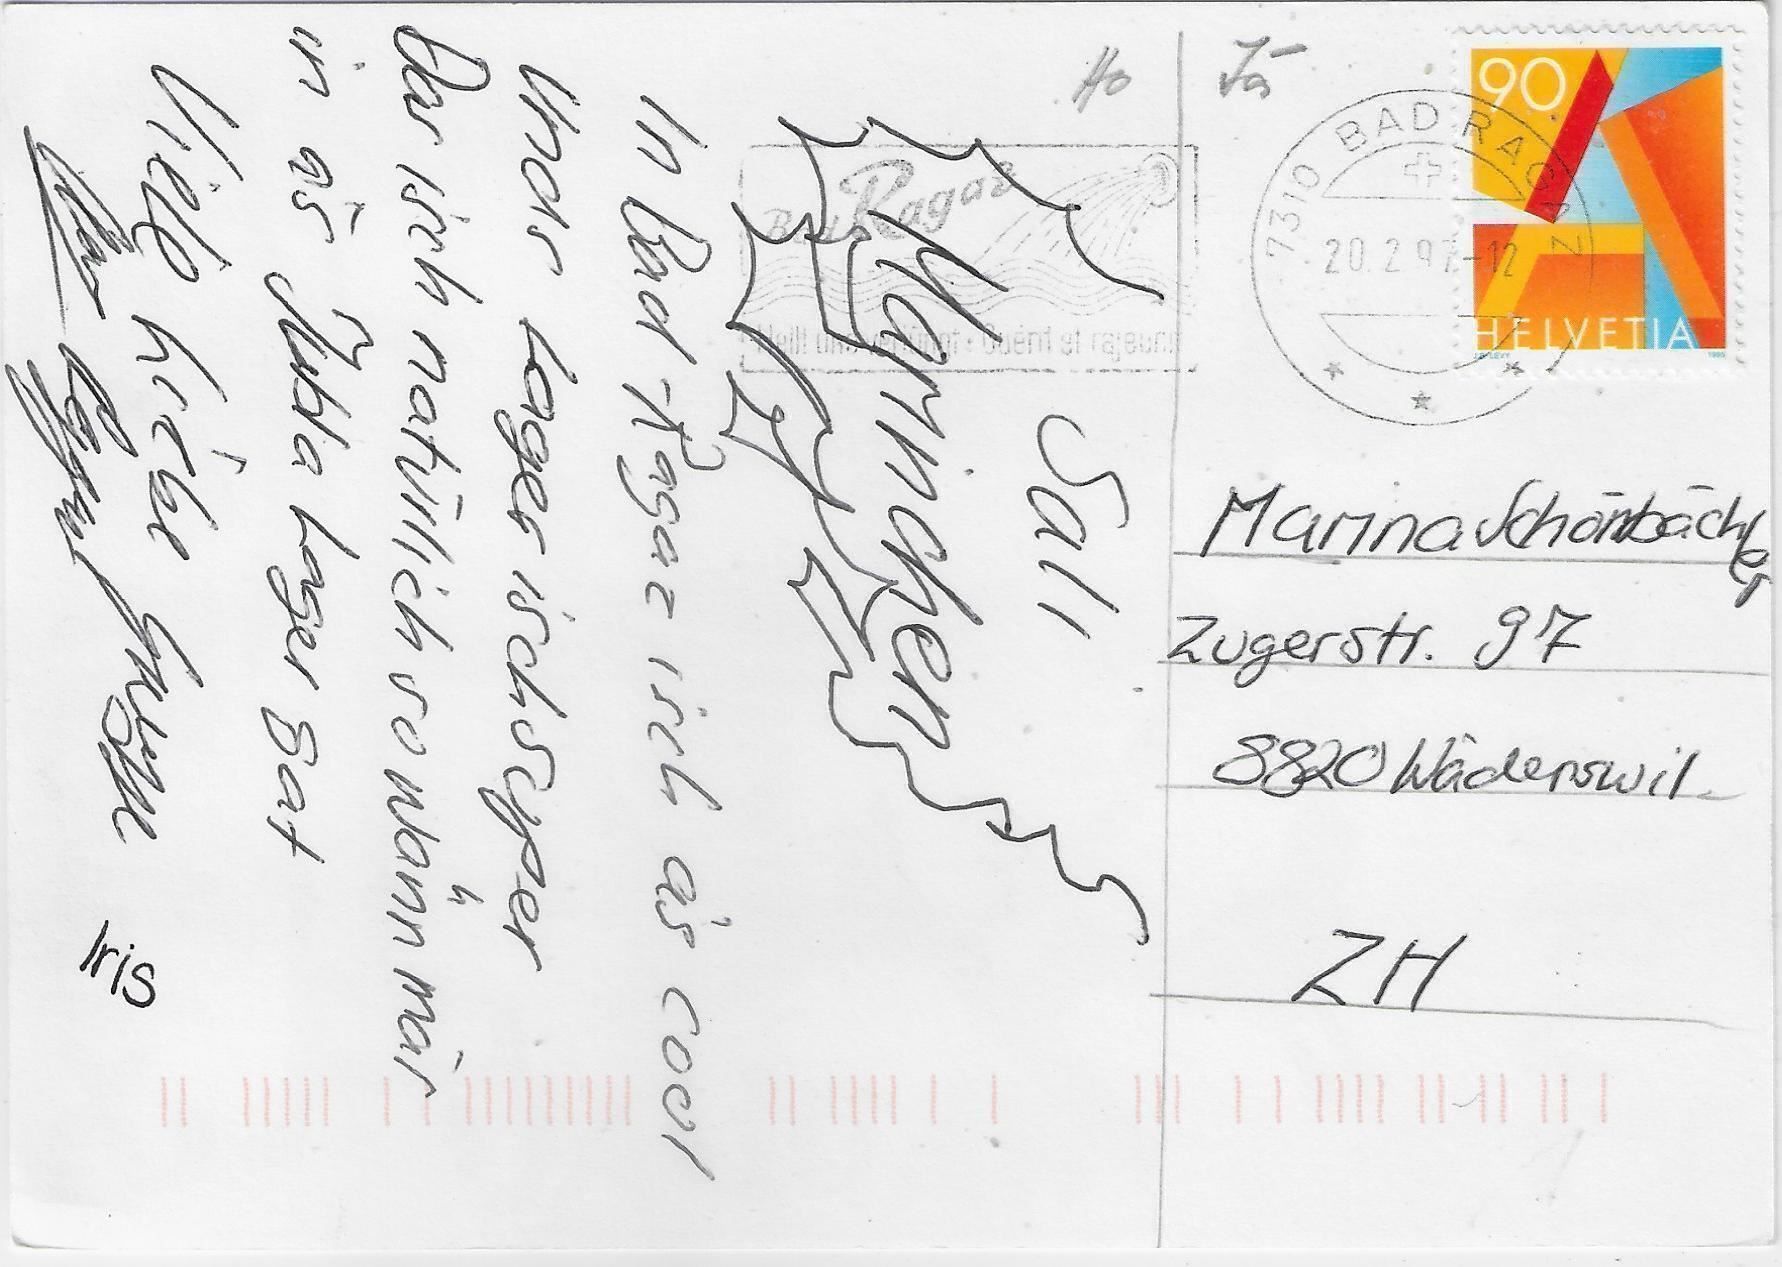 Sali
Marinchen
In Bad Ragaz isch äs cool
Unser Lager isch super
Das isch natürlich so wänn mär
in äs Jubla Lager gat
Viele liebe
Iris
Ho
Jä
Bad Ragaz
Heilt und verjüngt · Guérit et rajeunit
7310 BAD RAGAZ
20.2.97-12
90
HELVETIA
J.B. LEVY 1995
Marina Schönbächler
Zugerstr. 97
8820 Wädenswil.
ZH